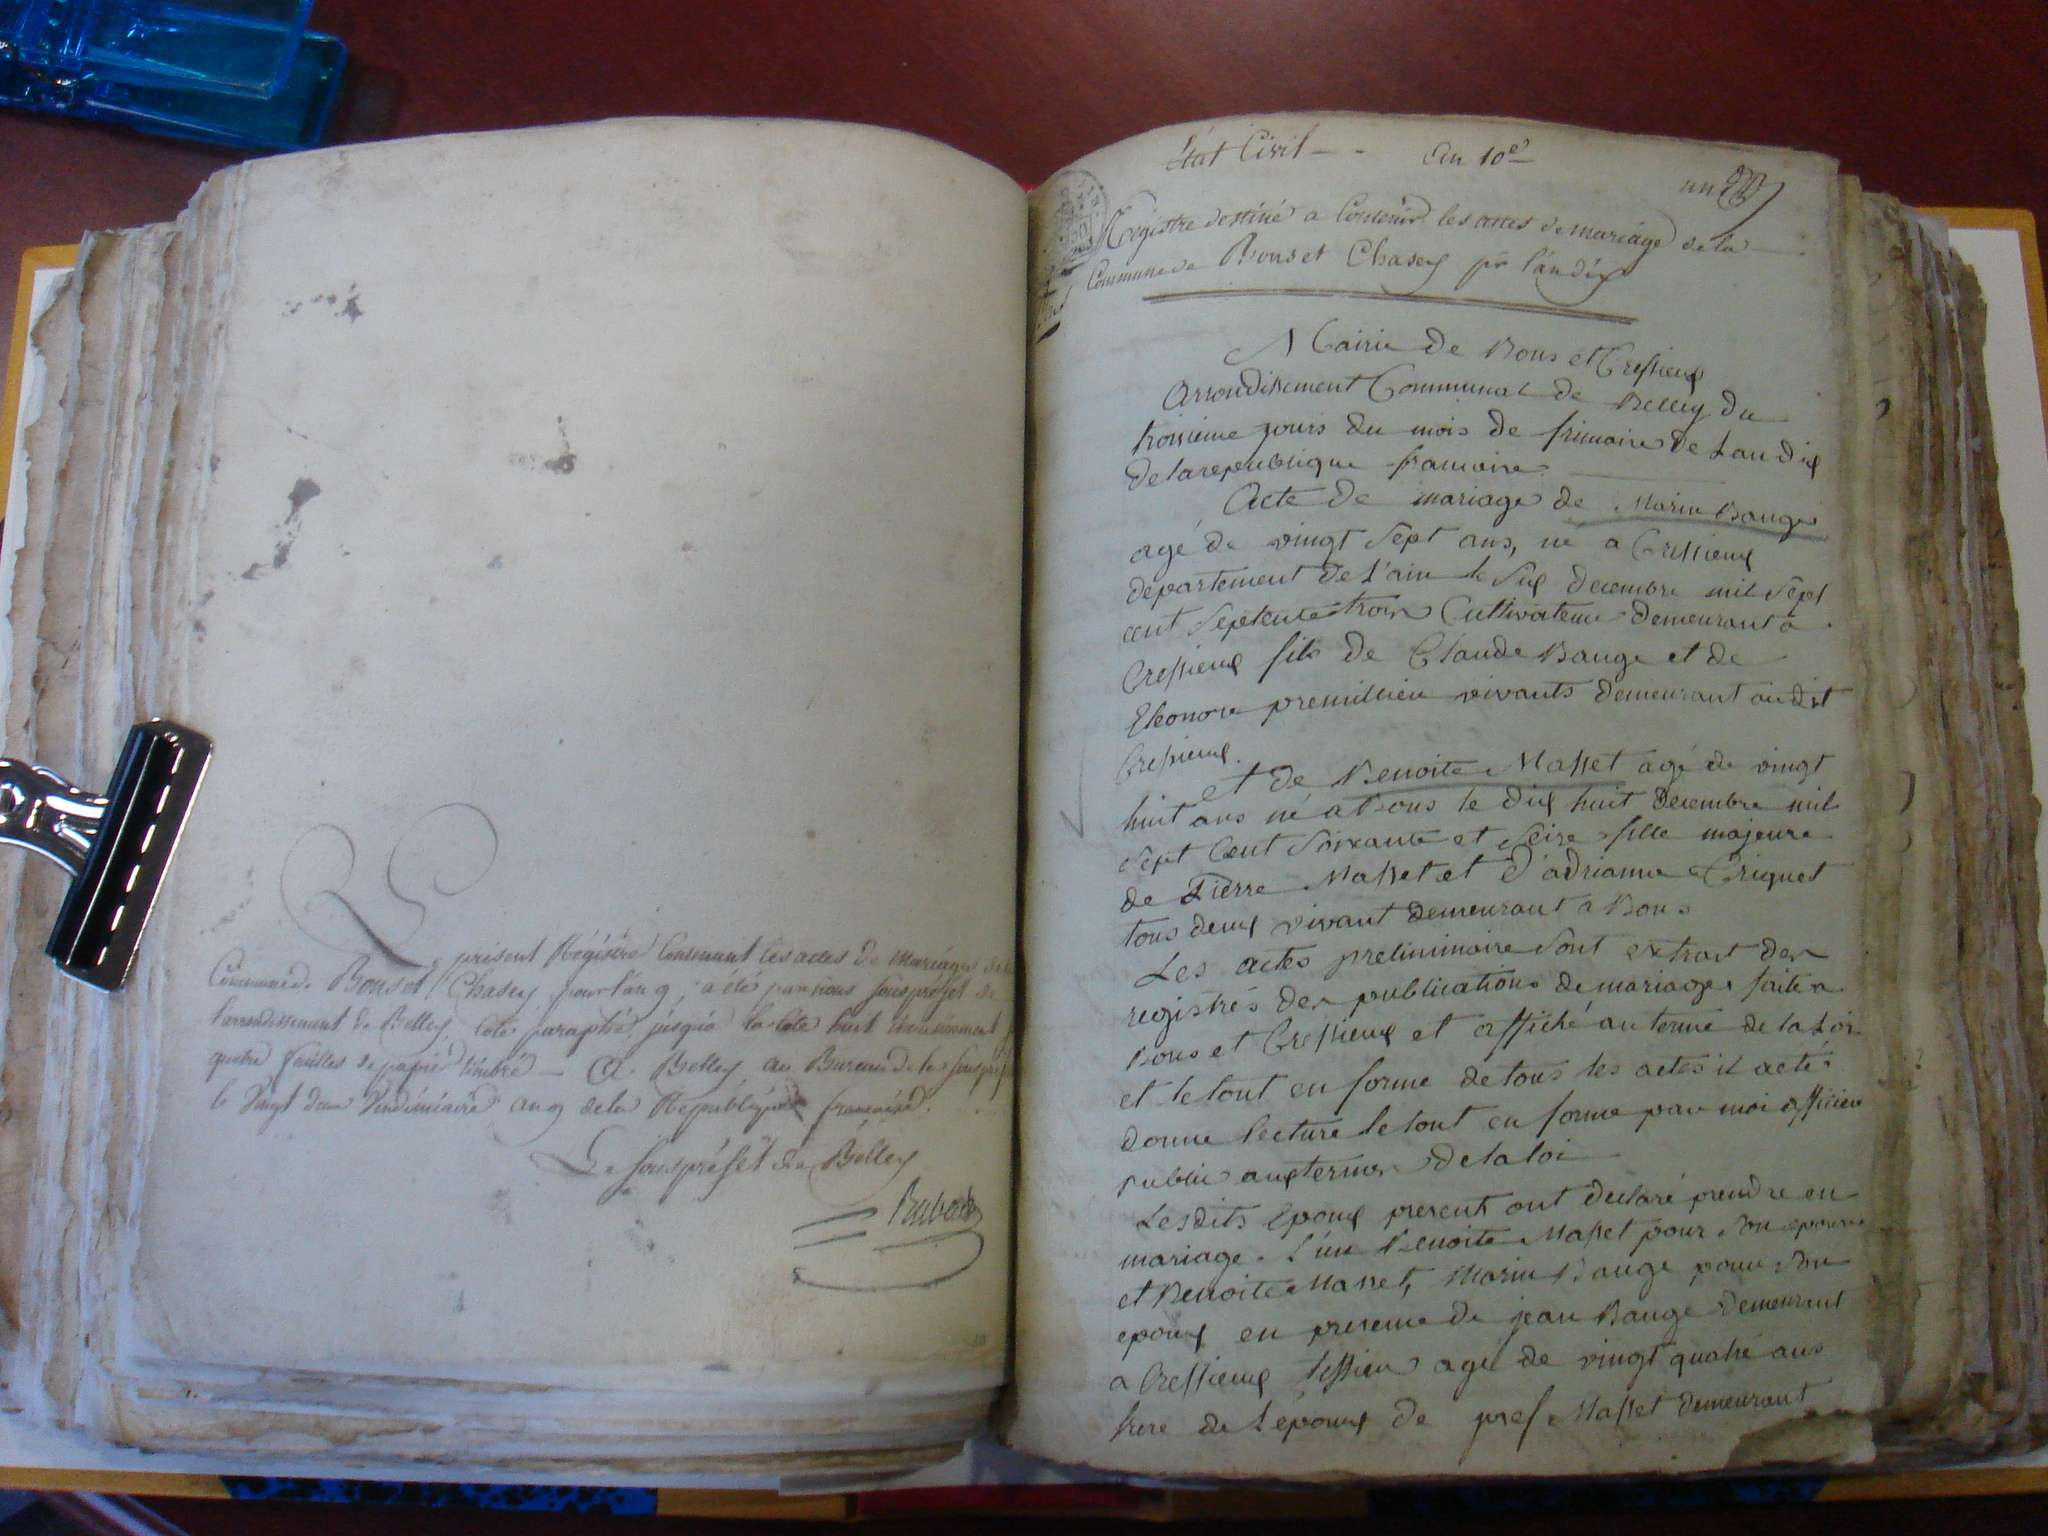 Le présent Régistre Contenant les actes de mariage de
Commune de Bons et Chasey pour l'an 9, a été par nous souspréfet de
l'arrondissement de Belley, coté paraphé, jusqu'a la cote huit
quatre feuilles de papier timbré — A Belley au Bureau de la souspréf
le Vingt deux Vendémiaire an 9 de la République française.
Le souspréfet de Belley
Etat Civil - - an 10e
un
Régistre destiné a Contenir les actes de mariage de la
Commune de Bons et Chasey pr l'an dix
Mairie de Bons et Cressieux
Arrondissement Communal de Belley du
troisieme jours du mois de frimaire de Lan dix
de la republique francaise.
Acte de mariage de Marin Bauge
agé de vingt Sept ans, né a Cressieux
département de L'ain le Six decembre mil Sept
cent Septente trois Cultivateur demeurant a
Cressieux fils de Claude Bauge et de
Eleonore premillieu vivants demeurant audit
Cressieux.
et de Benoite Masset agé de vingt
huit ans né a Bons le dix huit decembre mil
Sept Cent Soixante et Seize fille majeure
de Pierre Masset et d'adrianne Criquet
tous deux vivant demeurant a Bons
Les actes preliminaire Sont extrait des
registrés des publications de mariages faite a
Bons et Cressieux et affiché au terme de la Loi
et le tout en forme de tous les actes il acté
donne lecture le tout en forme par moi officier
public aux termes de la loi
Lesdits epoux present ont declaré prendre en
mariage. L'un Benoite Masset pour Son epouse
et Benoite Masset, Marin Bauge pour Son
epoux en presence de jean Bauge demeurant
a Cressieux tessier agé de vingt quatre ans
frere de L'époux de Masset demeurant